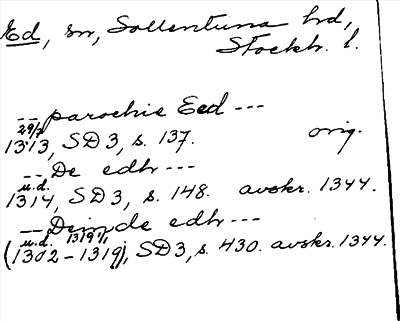 Ed, sn, Sollentuna hd,
Stockh. l.
-- parochie Eed ---
29/7
1313, SD 3, s. 137. orig.
-- De edh ---
u.d.
1314, SD 3, s. 148. avskr. 1344.
-- Deinde edh ---
u.d. 1319
(1302-1319), SD 3, s. 430. avskr. 1344.